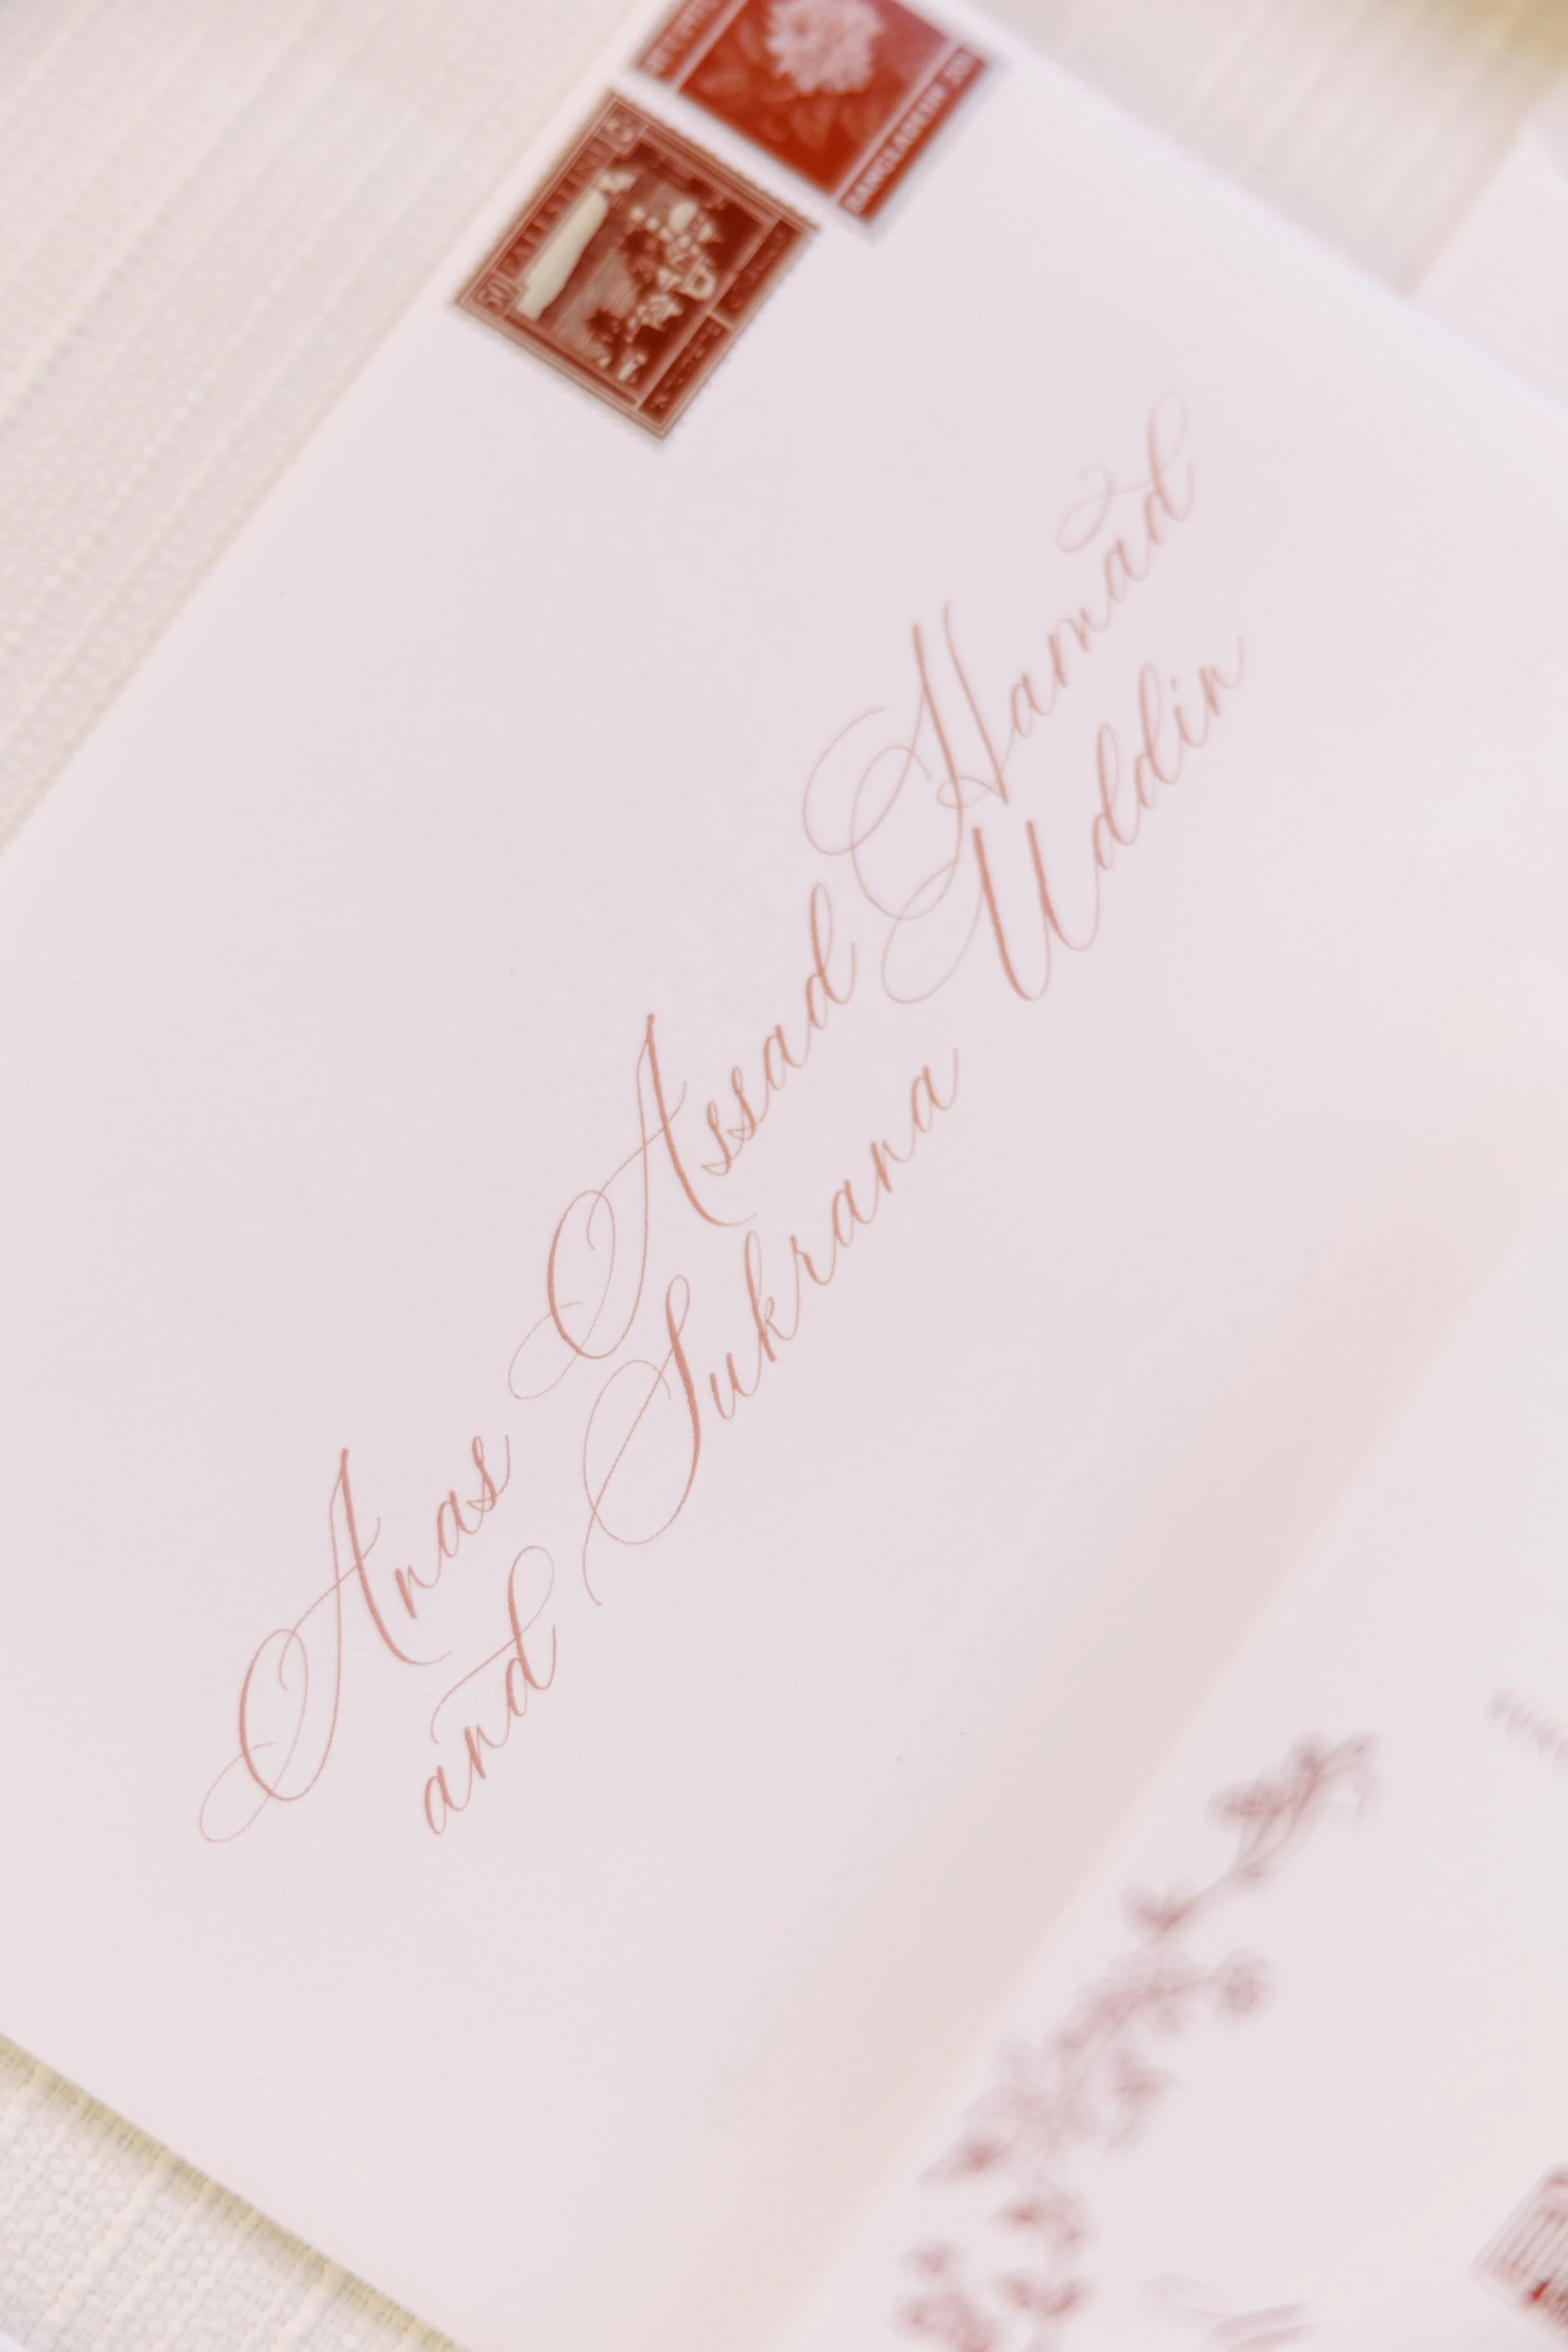 BANGLADESH
PALESTINE
50
Anas Assad Hamad
and Sukrana Uddin